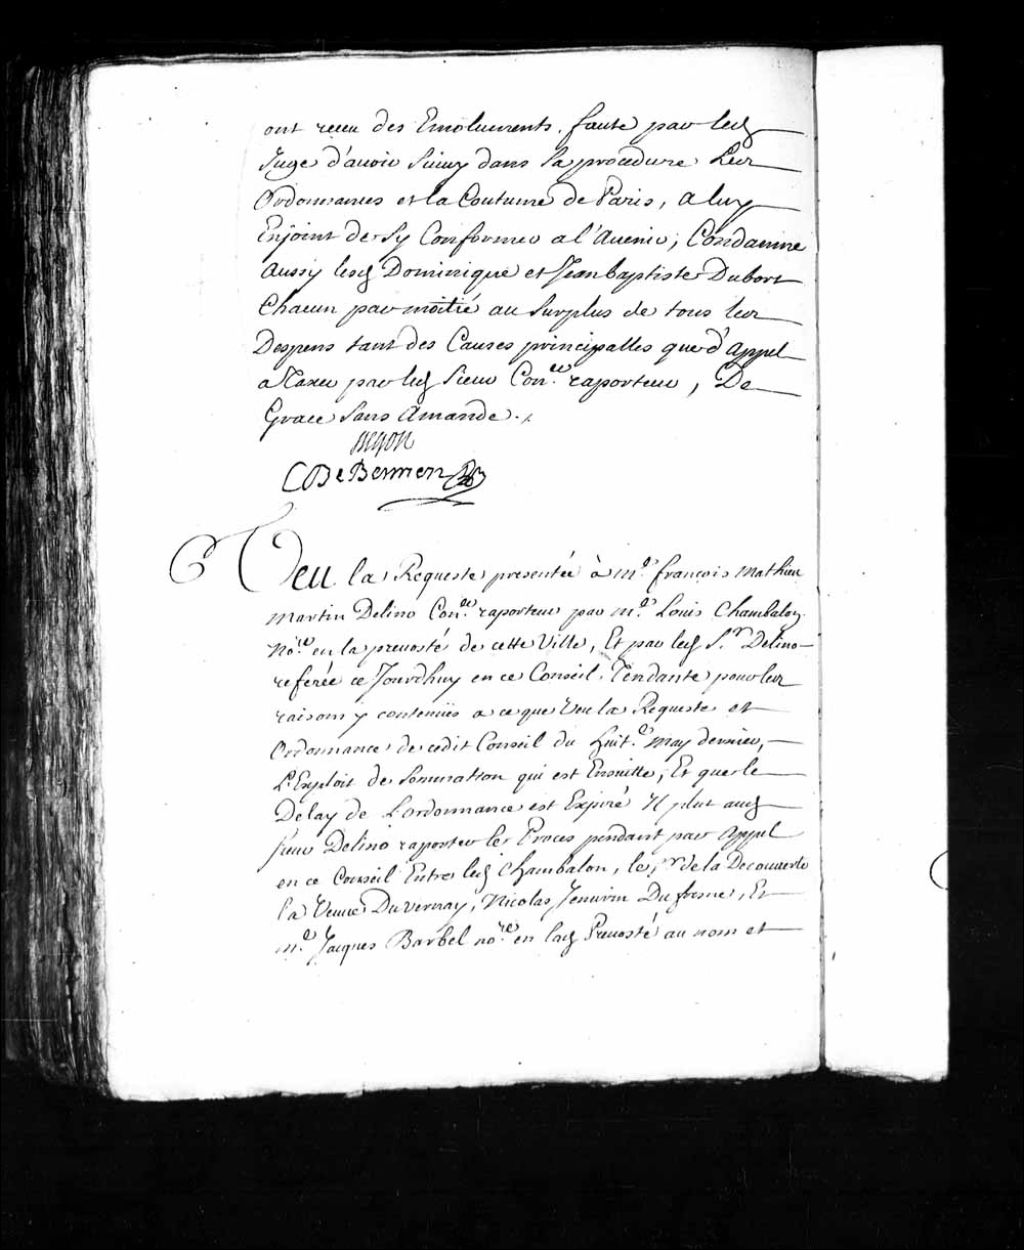 ont receu des Emoluments. faute par led
Juge d'avoir suivy dans sa procedure les
Ordonnances et la Coutume de Paris, a luy
Enjoint de sy Conformer a l'Avenir; Condamne
Aussy lesd Dominique et Jean baptiste Dubort
Chacun par moitié au surplus de tous les
Despens tant des Causes principalles que d'Appel
a Taxer par led sieur Con.er raporteur, De
Grace sans Amande.
Begon
C De Bermen
Veu la Requeste presentée à M.e françois Mathieu
Martin Delino Con.er raporteur par M.e Louis Chambalon
No.re en la prevosté de cette Ville, Et par led S.r Delino
referée ce Jourdhuy en ce Conseil. Tendante pour les
raisons y contenües a ce que Veu la Requeste et
Ordonnance de cedit Conseil du huit.e May dernier,
L'Exploit de sommation qui est Ensuitte, Et que le
Delay de l'ordonnance est Expiré Il plut aud
sieur Delino raporter le Proces pendant par Appel
en ce Conseil Entre led Chambalon, le s.r de la Decouverte
la Veuve Duvernay, Nicolas Jenvrin Dufresne, Et
M.e Jacques Barbel no.re en lad Prevosté au nom et